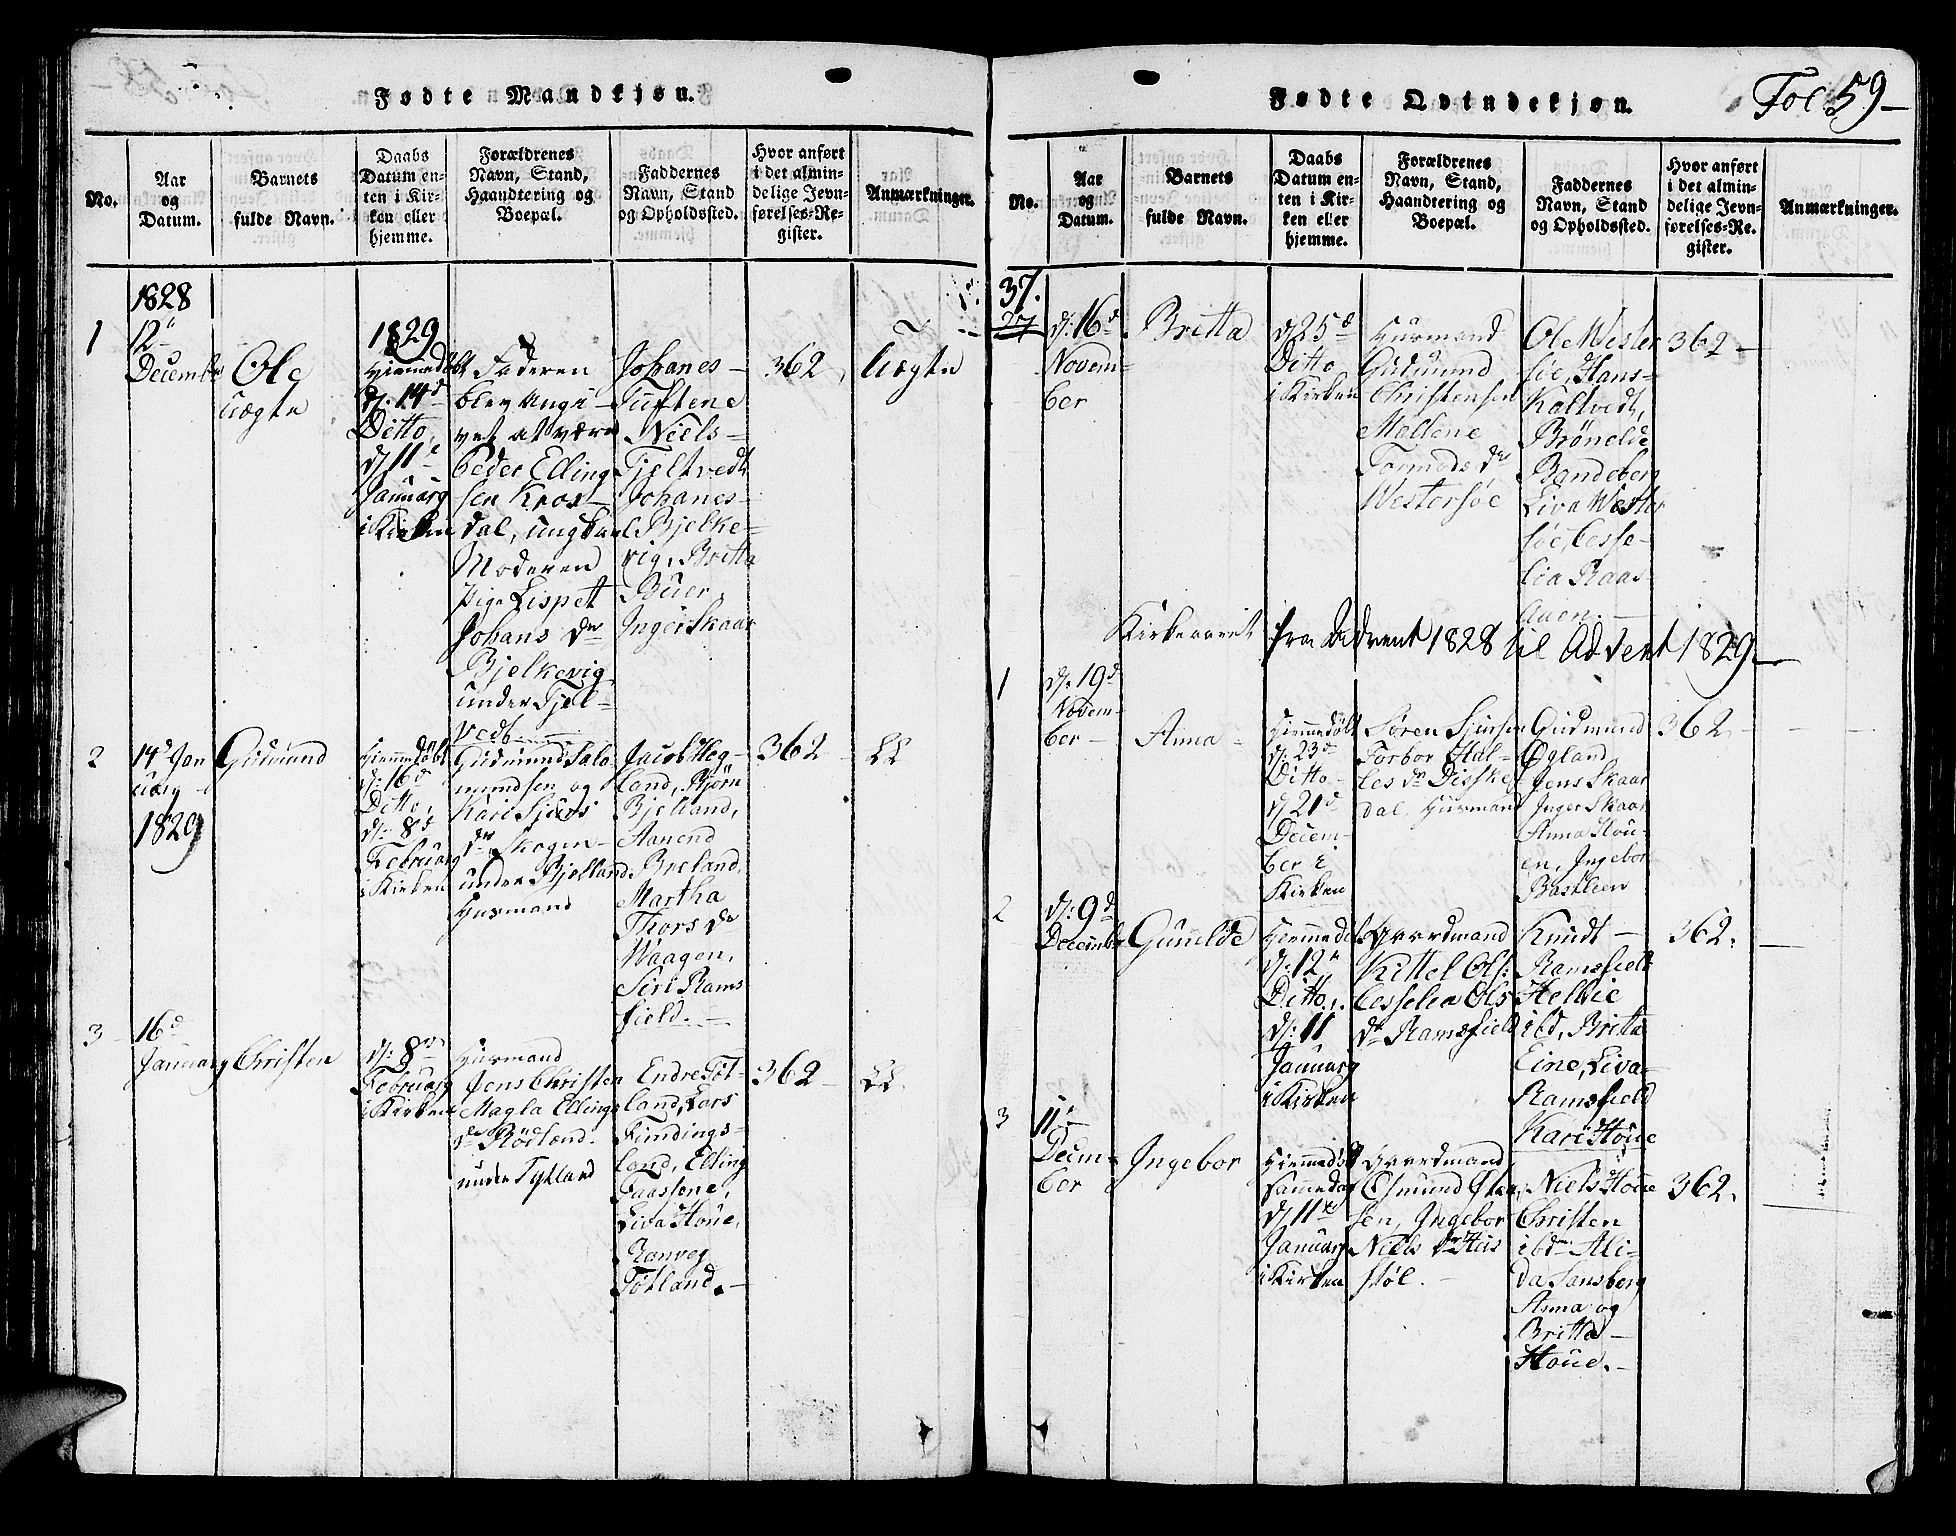 Fol 59
Fødte Mandkjøn.
No.
Aar og Datum.
Barnets fulde Navn.
Daabs Datum enten i Kirken eller hjemme.
Forældrenes Navn, Stand, Haandtering og Boepæl.
Faddernes Navn, Stand og Opholdssted.
Hvor anført i det almindelige Jevnførelses-Register.
Anmærkninger.
1
1828
12te
Decembr
Ole
uægte
1829
Hjemmedöbt
d: 14d
Ditto,
d 11te
Januarg
i Kirken
Faderen
blev angi-
vet at være
Peder Elling
sen Kros-
dal, ungkarl
Moderen
Pige Lispet
Johans dr
Bjelkevig
under Tjel-
vedt
Johanes
Tuftene
Niels
Tjeltvedt
Johanes
Bjelke-
vig, Britta
Buer,
Inger Skaar
362
Uægte
2
14d Jan
uarg
1829
Gudmund
Hjemmedöbt
d: 16d
Ditto,
d: 8d
Februarg
i Kirken
Gudmund Salo
mundsen og
Kari Sjurs
dr Skogen
under Bjelland
Husmand
Jacob Heg-
land, Bjørn
Bjelland,
Aanend
Breland,
Martha
Thors dr
Waagen,
Siri Rams
field.
362
3
16d
Januarg
Christen
d: 8de
Februarg
i Kirken
Husmand
Jens Christen
Magla Ellings
dr Röeland
under Tytland
Endre Töt-
land, Lars
Findings-
land, Elling
Faassene,
Liva Houe,
Ranveg
Totland.
362
Fødte Qvindekjøn.
No.
Aar og Datum.
Barnets fulde Navn.
Daabs Datum enten i Kirken eller hjemme.
Forældrenes Navn, Stand, Haandtering og Boepæl.
Faddernes Navn, Stand og Opholdssted.
Hvor anført i det almindelige Jevnførelses-Register.
Anmærkninger.
37.
27
d: 16d
Novem-
ber
Britta
d 25d
Ditto
i Kirken
Husmand
Gudmund
Christensen
Mallene
Tormods dr
Westersöe
Ole Wester
söe, Hans
Koltvedt,
Brönelde
Bandeberg
Liva Wester
söe, Cesse-
lia Raas
Auen.
362
Kirkeaaret fra Advent 1828 til Advent 1829
1
d: 19d
Novem-
ber
Anna
Hjemmedöbt
d: 23d
Ditto
d 21d
Decem-
ber i
Kirken
Sören Sjursen
Torbor Hal-
les dr Diske
dal, Husmand
Gudmund
Øgland,
Jens Skaar
Inger Skaar
Anna Hou-
en, Ingebor
Basteen
362
2
d: 9d
Decembr
Gunelde
Hjemmedöbt
d: 12te
Ditto,
d: 11
Januarg
i Kirken
Gaardmand
Kittel Ols:
Cesselia Ols
dr Ramsfield
Knudt
Ramsfield
Hellvie
ibd, Britta
Eine, Liva
Ramsfield
Kari Houe
362
3
11te
Decem-
ber
Ingebor
Hjemmedöbt
samme dag
d 11te
Januarg
i Kirken
Gaardmand
Osmund Olau
sen, Ingebor
Niels dr Hus
stöl.
Niels Houe
Christen
ibdm Ali-
da Sansberg
Anna og
Britta
Houe.
362